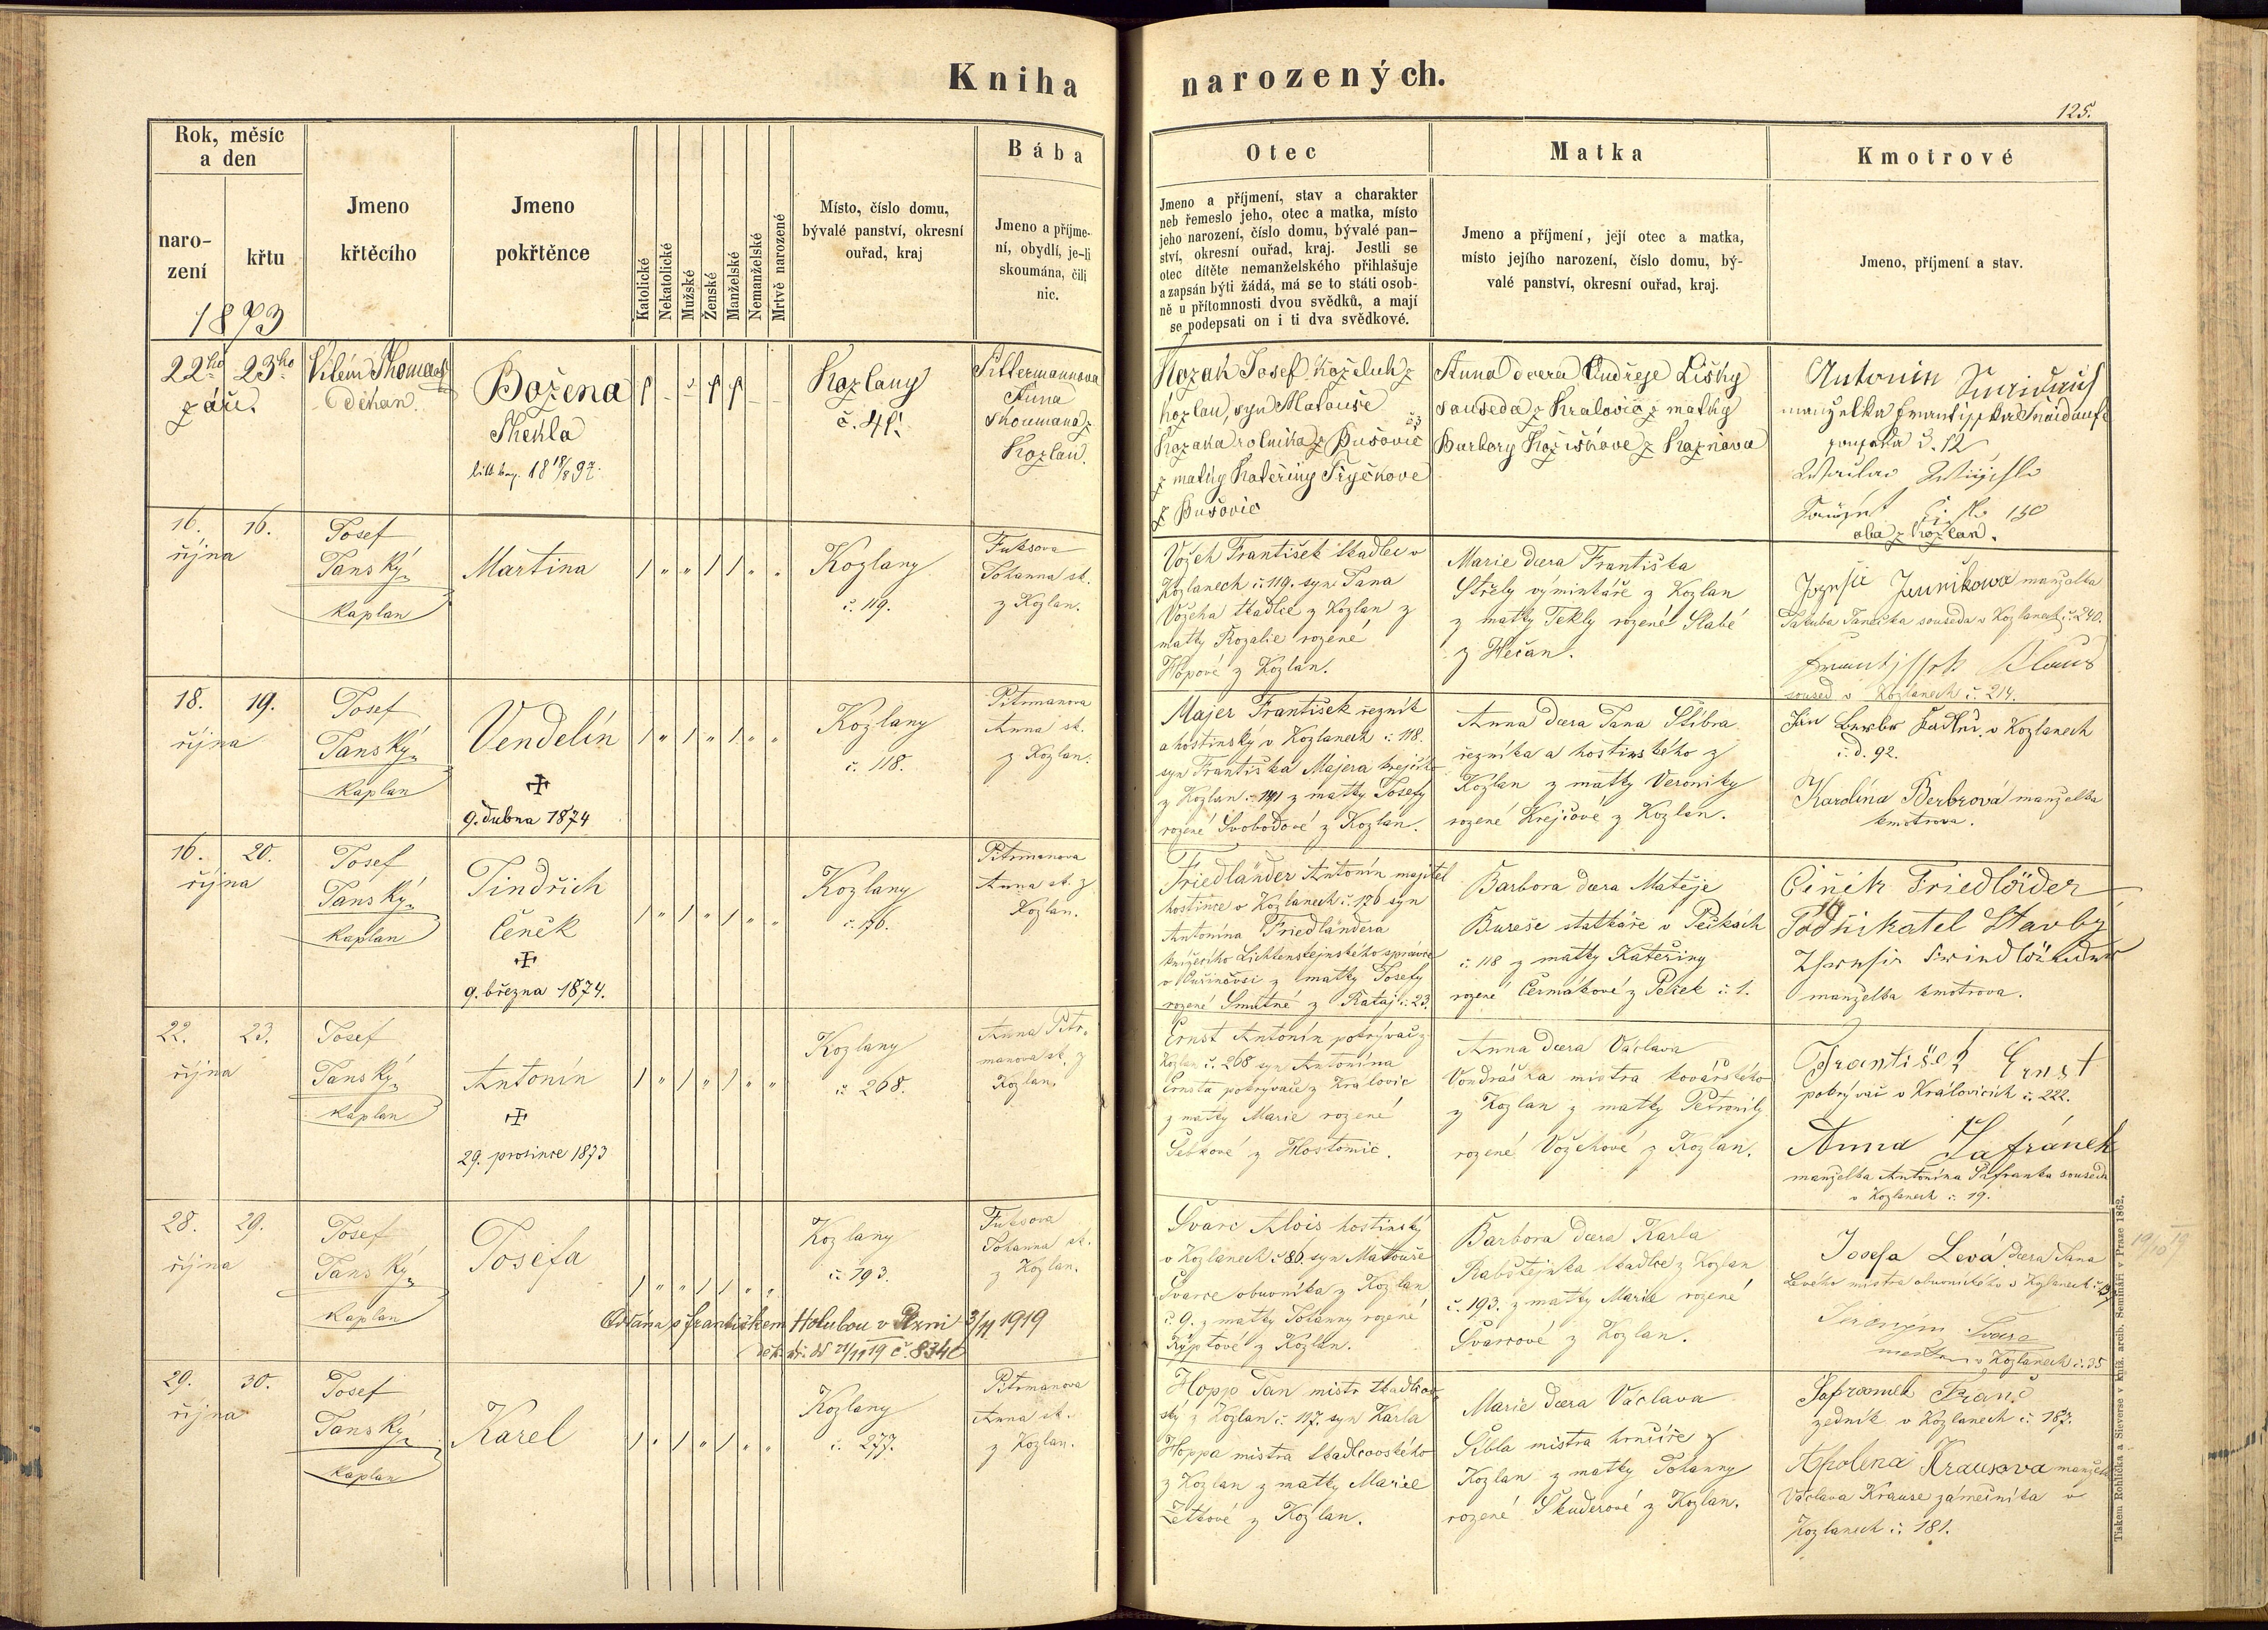 Kniha narozených.
125.
Rok, měsíc
a den
naro-
zení
křtu
1873
Jmeno
křtěcího
Jmeno
pokřtěnce
Katolické
Nekatolické
Mužské
Ženské
Manželské
Nemanželské
Mrtvě narozené
Místo, číslo domu,
bývalé panství, okresní
ouřad, kraj
Bába
Jmeno a příjme-
ní, obydlí, je-li
skoumána, čili
nic.
Otec
Jmeno a příjmení, stav a charakter
neb řemeslo jeho, otec a matka, místo
jeho narození, číslo domu, bývalé pan-
ství, okresní ouřad, kraj. Jestli se
otec dítěte nemanželského přihlašuje
a zapsán býti žádá, má se to státi osob-
ně u přítomnosti dvou svědků, a mají
se podepsati on i ti dva svědkové.
Matka
Jmeno a příjmení, její otec a matka,
místo jejího narození, číslo domu, bý-
valé panství, okresní ouřad, kraj.
Kmotrové
Jmeno, příjmení a stav.
22ho 23ho
září.
Vilém Thoma
děkan
Božena
Thekla
18 18/8 97.
Kozlany
č. 41.
Pittermannova
Anna
skoumaná z
Kozlan.
Kozak Josef Koželuh z
Kozlan, syn Matouše
Kozaka rolníka z Bušovic
z matky Kateřiny Tryčkove
z Bušovic
Anna dcera Ondřeje Lišky
souseda z Kralovic z matky
Barbory Kožiškove z Kaznava
Antonín
manželka
č. 12
150
oba z Kozlan.
16. 16.
října
Josef
Janský
Kaplan
Martina
Kozlany
č. 119.
Fuksova
Johanna sk.
z Kozlan.
Vožeh František tkadlec v
Kozlanech č. 119. syn Jana
Vožeha tkadlce z Kozlan z
matky Rozalie rozené
Hopové z Kozlan.
Marie dcera Františka
Střely výminkáře z Kozlan
z matky Tekly rozené Slabé
z Hečan.
manželka
Jakuba Janečka souseda v Kozlanech č. 240.
soused v Kozlanech č. 214.
18. 19.
října
Josef
Janský
Kaplan
Vendelín
9. dubna 1874
Kozlany
č. 118.
Pitrmanova
Anna sk.
z Kozlan.
Majer František řezník
a hostinský v Kozlanech č. 118.
syn Františka Majera krejčího
z Kozlan č. 191 z matky Josefy
rozené Svobodové z Kozlan.
Anna dcera Jana Stibra
řezníka a hostinského z
Kozlan z matky Veroniky
rozené Krejčové z Kozlan.
Jan Berbr v Kozlanech
č. d. 92.
Karolína Berbrová manželka
kmotrova.
16. 20.
října
Josef
Janský
Kaplan
Jindřich
Čeněk
9. března 1874.
Kozlany
č. 176.
Pitrmanova
Anna sk. z
Kozlan.
Friedländer Antonín majitel
hostince v Kozlanech č. 176 syn
Antonína Friedländera
knížecího Lichtensteinského správce
v Kuřinovsi z matky Josefy
rozené Smutné z Rataj č. 23.
Barbora dcera Matěje
Bureše statkáře v Pečkách
č. 118 z matky Kateřiny
rozené Čermákové z Peček č. 1.
Čeněk Friedländer
Podnikatel Stavby
manželka kmotrova.
22. 23.
října
Josef
Janský
Kaplan
Antonín
29. prosince 1873
Kozlany
č. 268.
Anna Pitr-
manova sk. z
Kozlan.
Ernst Antonín pokrývač z
Kozlan č. 268 syn Antonína
Ernsta pokrývače z Kralovic
z matky Marie rozené
Šebkové z Hostomic.
Anna dcera Václava
Vondráška mistra kovářského
z Kozlan z matky Petronily
rozené Vožehové z Kozlan.
František Ernst
pokrývač v Královicích č. 222.
Anna Šafránek
manželka Antonína Šafranka souseda
v Kozlanech č. 19.
28. 29.
října
Josef
Janský
Kaplan
Josefa
Kozlany
č. 193.
Fuksova
Johanna sk.
z Kozlan.
Oddána s Františkem Holubou v Plzni 3/11 1919
21/11 19 č. 8340
Švarc Alois hostinský
v Kozlanech č. 86 syn Matouše
Švarce obuvníka z Kozlan
č. 9. z matky Johanny rozené
Kyptové z Kozlan.
Barbora dcera Karla
Rabštejnka tkadlce z Kozlan
č. 193. z matky Marie rozené
Švarcové z Kozlan.
Josefa Levá dcera Jana
Levého mistra obuvnického v Kozlanech
Švarc
v Kozlanech č. 35
29. 30.
října
Josef
Janský
Kaplan
Karel
Kozlany
č. 277.
Pitrmanova
Anna sk.
z Kozlan.
Hopp Jan mistr tkadlcov-
ský z Kozlan č. 117. syn Karla
Hoppa mistra tkadlcovského
z Kozlan z matky Marie
Žetkové z Kozlan.
Marie dcera Václava
Šibla mistra hrnčíře z
Kozlan z matky Johanny
rozené Škuderové z Kozlan.
Šafranek Franc
zedník v Kozlanech č. 187.
Apolena Krausova manželka
Václava Krause zámečníka v
Kozlanech č. 181.
Tiskem Rohlíčka a Sieverse v kníž. arcib. Semináři v Praze 1862.